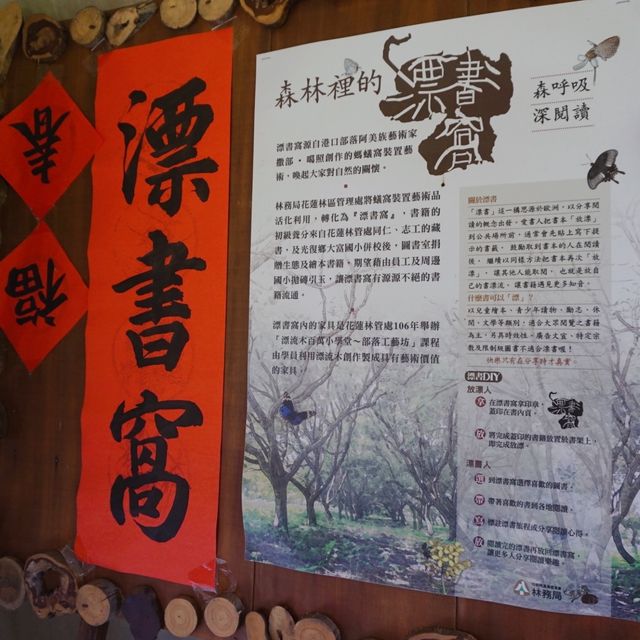 春
福
漂書窩
森林裡的
漂書窩
森呼吸
深閱讀
漂書窩源自港口部落阿美族藝術家
撒部·噶照創作的螞蟻窩裝置藝
術，喚起大家對自然的關懷。
林務局花蓮林區管理處將蟻窩裝置藝術品
活化利用，轉化為『漂書窩』，書籍的
初級養分來自花蓮林管處同仁、志工的藏
書，及光復鄉大富國小併校後，圖書室捐
贈生態及繪本書籍，期望藉由員工及周邊
國小拋磚引玉，讓漂書窩有源源不絕的書
籍流通。
漂書窩內的家具是花蓮林管處106年舉辦
「漂流木百萬小學堂～部落工藝坊」課程
由學員利用漂流木創作製成具有藝術價值
的家具。
關於漂書
「漂書」這一構思源於歐洲，以分享閱
讀的概念出發，愛書人把書本「放漂」
到公共場所前，通常會先貼上寫下提
示的書籤，鼓勵取到書本的人在閱讀
後，繼續以同樣方法把書本再次「放
漂」，讓其他人能取閱，也就是放自
己的書漂流，讓書籍遇見更多知音。
什麼書可以「漂」？
以兒童繪本、青少年讀物、勵志、休
閒、文學等類別，適合大眾閱覽之書籍
為主，另具時效性、廣告文宣、特定宗
教及限制級圖書不適合漂書喔！
快樂只有在分享時才真實
漂書DIY
放漂人
拿 在漂書窩享印章，
蓋印在書內頁。
放 將完成蓋印的書籍放置於書架上，
即完成放漂。
漂書人
選 到漂書窩選擇喜歡的圖書。
帶 帶著喜歡的書到各地閱讀。
寫 標註漂書旅程或分享閱讀心得。
放 閱讀完的漂書再放回漂書窩，
讓更多人分享閱讀樂趣。
林務局